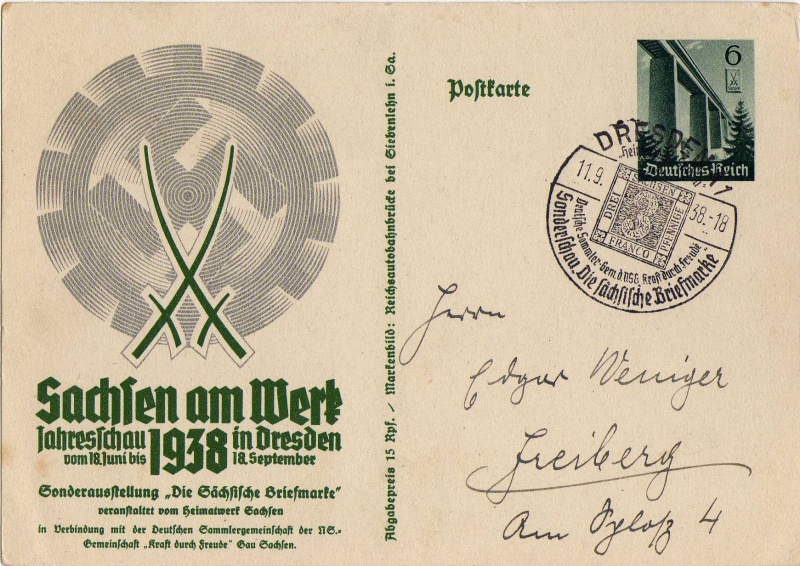 Sachsen am Werk
Jahresschau 1938 in Dresden
vom 18. Juni bis 18. September
Sonderausstellung „Die Sächsische Briefmarke“
veranstaltet vom Heimatwerk Sachsen
in Verbindung mit der Deutschen Sammlergemeinschaft der NS.-
Gemeinschaft „Kraft durch Freude“ Gau Sachsen.
Abgabepreis 15 Rpf. / Markenbild: Reichsautobahnbrücke bei Siebenlehn i. Sa.
Postkarte
6
Deutsches Reich
DRESDEN
11.9. 38.-18
SACHSEN
DREI
3
PFENNIGE
FRANCO
Deutsche Sammler-Gem. d. NSG. Kraft durch Freude
Sonderschau „Die sächsische Briefmarke“
Herrn
Edgar Weniger
Freiberg
Am Schloß 4